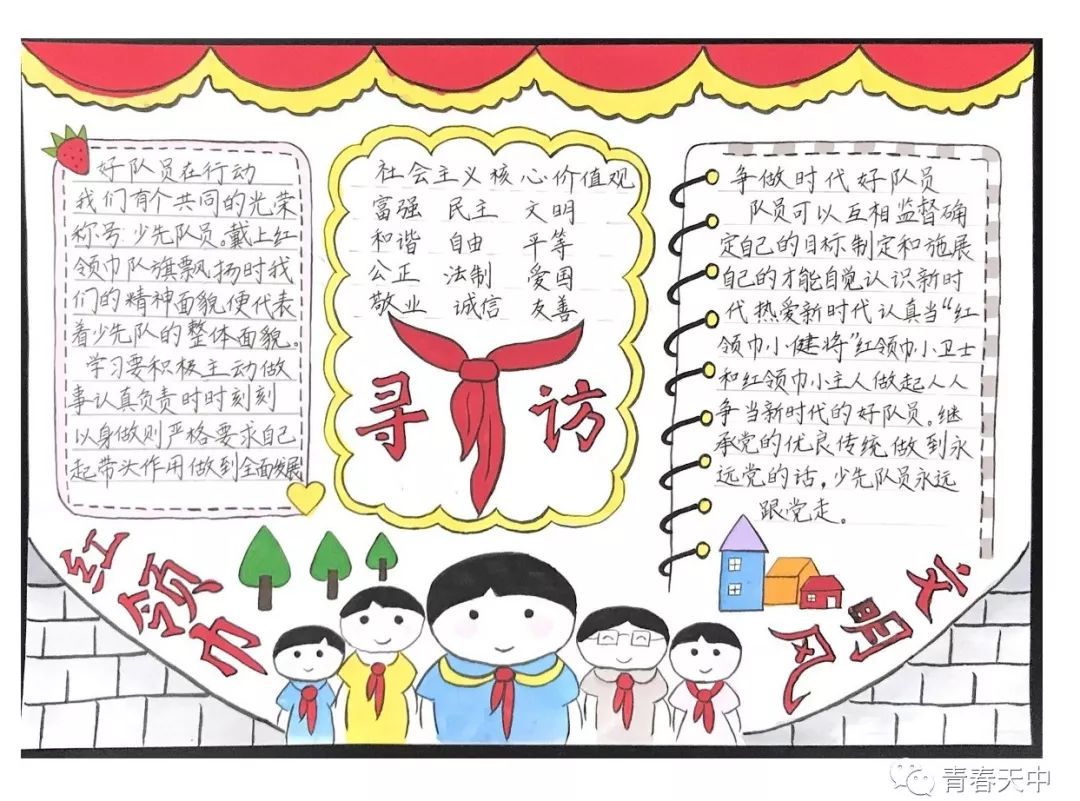 好队员在行动
我们有个共同的光荣
称号 少先队员。戴上红
领巾队旗飘扬时我
们的精神面貌便代表
着少先队的整体面貌。
学习要积极主动做
事认真负责时时刻刻
以身做则严格要求自己
起带头作用做到全面发展
社会主义核心价值观
富强 民主 文明
和谐 自由 平等
公正 法制 爱国
敬业 诚信 友善
寻访
争做时代好队员
队员可以互相监督确
定自己的目标制定和施展
自己的才能自觉认识新时
代热爱新时代认真当“红
领巾小健将”红领巾小卫士
和红领巾小主人做起人人
争当新时代的好队员。继
承党的优良传统做到永
远党的话,少先队员永远
跟党走。
红领巾
文明风
青春天中